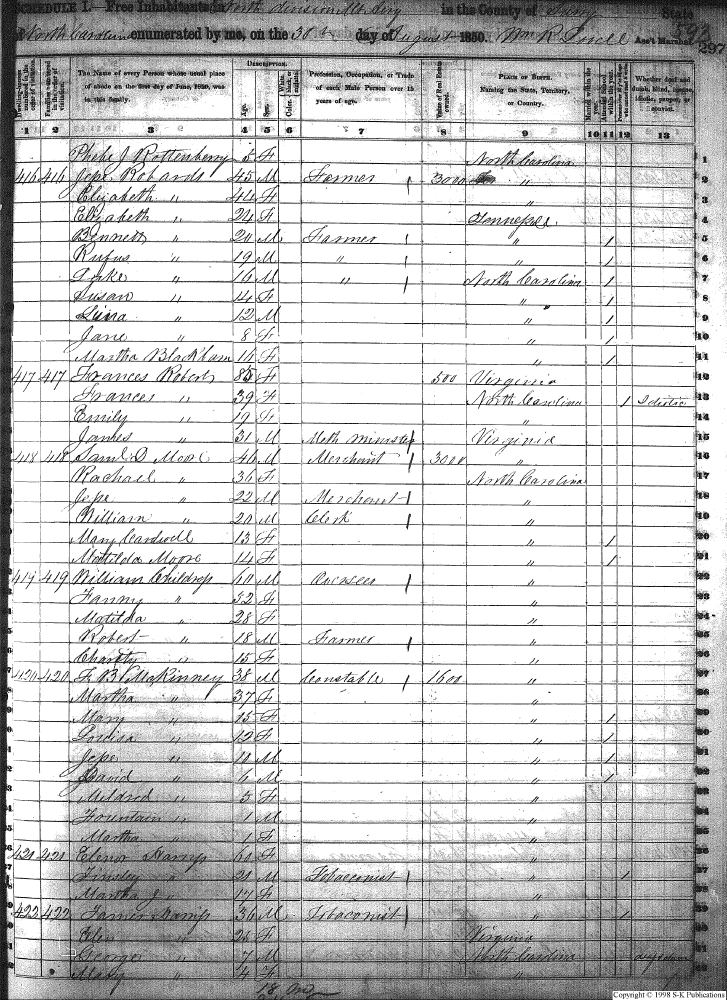 SCHEDULE I.—Free Inhabitants in North Division in the County of Surry State
of North Carolina enumerated by me, on the 30th day of August 1850. Wm R. Ass't Marshal. 297
DESCRIPTION.
The Name of every Person whose usual place of abode on the first day of June, 1850, was in this family.
Age. Sex. Color.
Profession, Occupation, or Trade of each Male Person over 15 years of age.
Value of Real Estate owned.
PLACE OF BIRTH. Naming the State, Territory, or Country.
Whether deaf and dumb, blind, insane, idiotic, pauper, or convict.
1 2 3 4 5 6 7 8 9 10 11 12 13
Phebe J Rottenberry 5 F North Carolina 1
416 416 Jesse Robards 45 M Farmer 1 3000 " 2
Elizabeth " 44 F " 3
Elizabeth " 24 F Tennessee 4
Bennett " 20 M Farmer 1 " 1 5
Rufus " 19 M " 1 " 1 6
" 16 M " 1 North Carolina 1 7
Susan " 14 F " 1 8
" 12 M " 1 9
Jane " 8 F " 1 10
Martha Blackburn 16 F " 1 11
417 417 Frances Roberts 85 F 500 Virginia 12
Frances " 39 F North Carolina 1 13
Emily " 19 F " 14
James " 31 M Meth minister 1 Virginia 15
418 418 Saml D Moore 46 M Merchant 1 3000 " 16
Rachael " 36 F North Carolina 17
Jesse " 22 M Merchant 1 " 18
William " 20 M Clerk 1 " 19
Mary Cardwell 13 F " 1 20
Matilda Moore 14 F " 1 21
419 419 William Childress 60 M Overseer 1 " 22
Fanny " 32 F " 23
Matilda " 28 F " 24
Robert " 18 M Farmer 1 " 25
Charity " 15 F " 26
420 420 F B McKinney 38 M Constable 1 1600 " 27
Martha " 37 F " 28
Mary " 15 F " 1 29
Louisa " 12 F " 1 30
Jesse " 10 M " 1 31
David " 6 M " 1 32
Mildred " 3 F " 33
Fountain " 1 M " 34
Martha " 1 F " 35
421 421 Elenor 60 F " 36
Tinsley " 21 M Tobacconist 1 " 1 37
Martha J " 17 F " 38
422 422 36 M Tobacconist 1 " 1 39
" 25 F Virginia 40
George " 7 M North Carolina 41
Mary " 4 F " 42
Copyright © 1998 S-K Publications